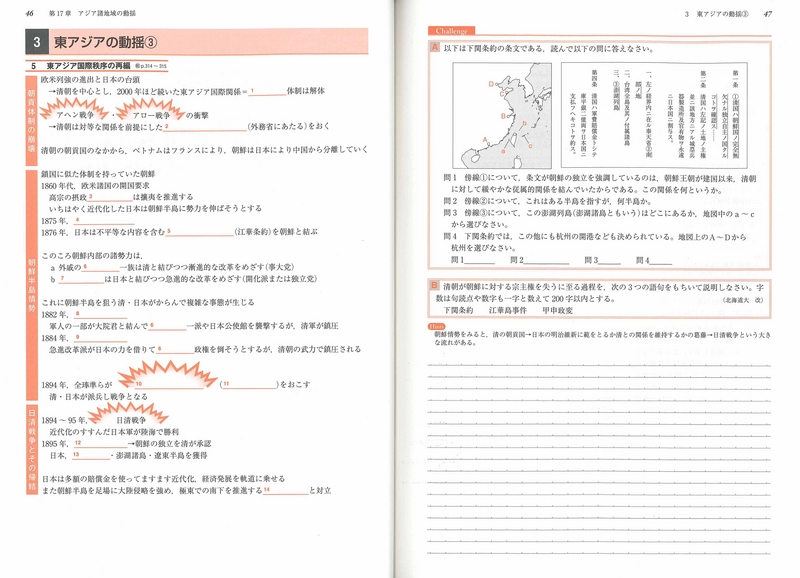 46 第17章 アジア諸地域の動揺
3 東アジアの動揺③
5 東アジア国際秩序の再編 p.314~315
朝貢体制の崩壊
欧米列強の進出と日本の台頭
→清朝を中心とし、2000年ほど続いた東アジア国際関係=1 体制は解体
アヘン戦争・アロー戦争の衝撃
→清朝は対等な関係を前提にした2 (外務省にあたる)をおく
清朝の朝貢国のなかから、ベトナムはフランスにより、朝鮮は日本により中国から分離していく
朝鮮半島情勢
鎖国に似た体制を持っていた朝鮮
1860年代、欧米諸国の開国要求
高宗の摂政3 は攘夷を推進する
いちはやく近代化した日本は朝鮮半島に勢力を伸ばそうとする
1875年、4
1876年、日本は不平等な内容を含む5 (江華条約)を朝鮮と結ぶ
このころ朝鮮内部の諸勢力は、
a 外戚の6 一族は清と結びつつ漸進的な改革をめざす(事大党)
b 7 は日本と結びつつ急進的な改革をめざす(開化派または独立党)
これに朝鮮半島を狙う清・日本がからんで複雑な事態が生じる
1882年、8
軍人の一部が大院君と結んで6 一派や日本公使館を襲撃するが、清軍が鎮圧
1884年、9
急進改革派が日本の力を借りて6 政権を倒そうとするが、清朝の武力で鎮圧される
1894年、全琫準らが 10 (11 )をおこす
清・日本が派兵し戦争となる
日清戦争とその帰結
1894~95年、日清戦争
近代化のすすんだ日本軍が陸海で勝利
1895年、12 →朝鮮の独立を清が承認
日本、13 ・澎湖諸島・遼東半島を獲得
日本は多額の賠償金を使ってますます近代化、経済発展を軌道に乗せる
また朝鮮半島を足場に大陸侵略を強め、極東での南下を推進する14 と対立
3 東アジアの動揺③ 47
Challenge
A 以下は下関条約の条文である、読んで以下の問に答えなさい。
第一条 ①清国ハ朝鮮国ノ完全無
欠ナル独立自主ノ国タル
コトヲ確認ス……
第二条 清国ハ左記ノ土地ノ主権
並ニ該地方ニアル城塁兵
器製造所及官有物ヲ永遠
ニ日本国ニ割与ス。
一、左ノ経界内ニ在ル奉天省②南
部ノ地
二、台湾全島及其ノ付属諸島
三、③澎湖列島
第四条 清国ハ軍費賠償金トシテ
庫平銀二億両ヲ日本国ニ
支払フヘキコトヲ約ス。
問1 傍線①について、条文が朝鮮の独立を強調しているのは、朝鮮王朝が建国以来、清朝
に対して緩やかな従属的関係を結んでいたからである。この関係を何というか。
問2 傍線②について、これはある半島を指すが、何半島か。
問3 傍線③について、この澎湖列島(澎湖諸島ともいう)はどこにあるか、地図中のa~c
から選びなさい。
問4 下関条約では、この他にも杭州の開港なども決められている。地図上のA~Dから
杭州を選びなさい。
問1 問2 問3 問4
B 清朝が朝鮮に対する宗主権を失うに至る過程を、次の3つの語句をもちいて説明しなさい。字
数は句読点や数字も一字と数えて200字以内とする。 (北海道大 改)
下関条約 江華島事件 甲申政変
Hint
朝鮮情勢をみると、清の朝貢国→日本の明治維新に範をとるか清との関係を維持するかの葛藤→日清戦争という大き
な流れがある。